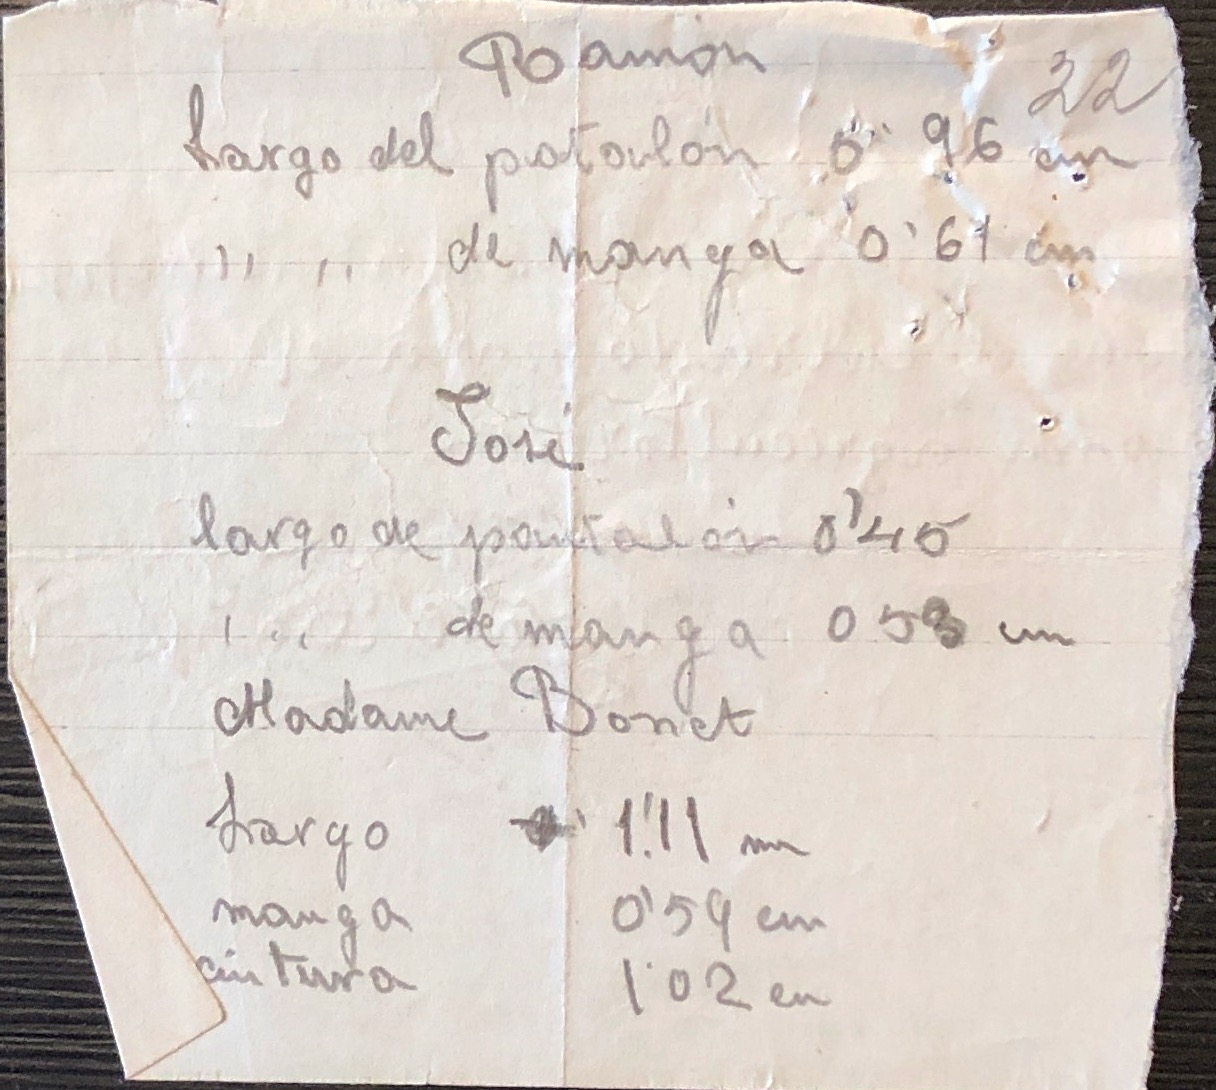 Ramón
22
Largo del patalón 0'96 cm
,,,, ,, de manga 0'61 cm
José
largo de pantalón 0'45
,,, de manga 0 53 cm
Madame Bonet
Largo 1'11 mm
manga 0'59 cm
cintura 1'02 cm